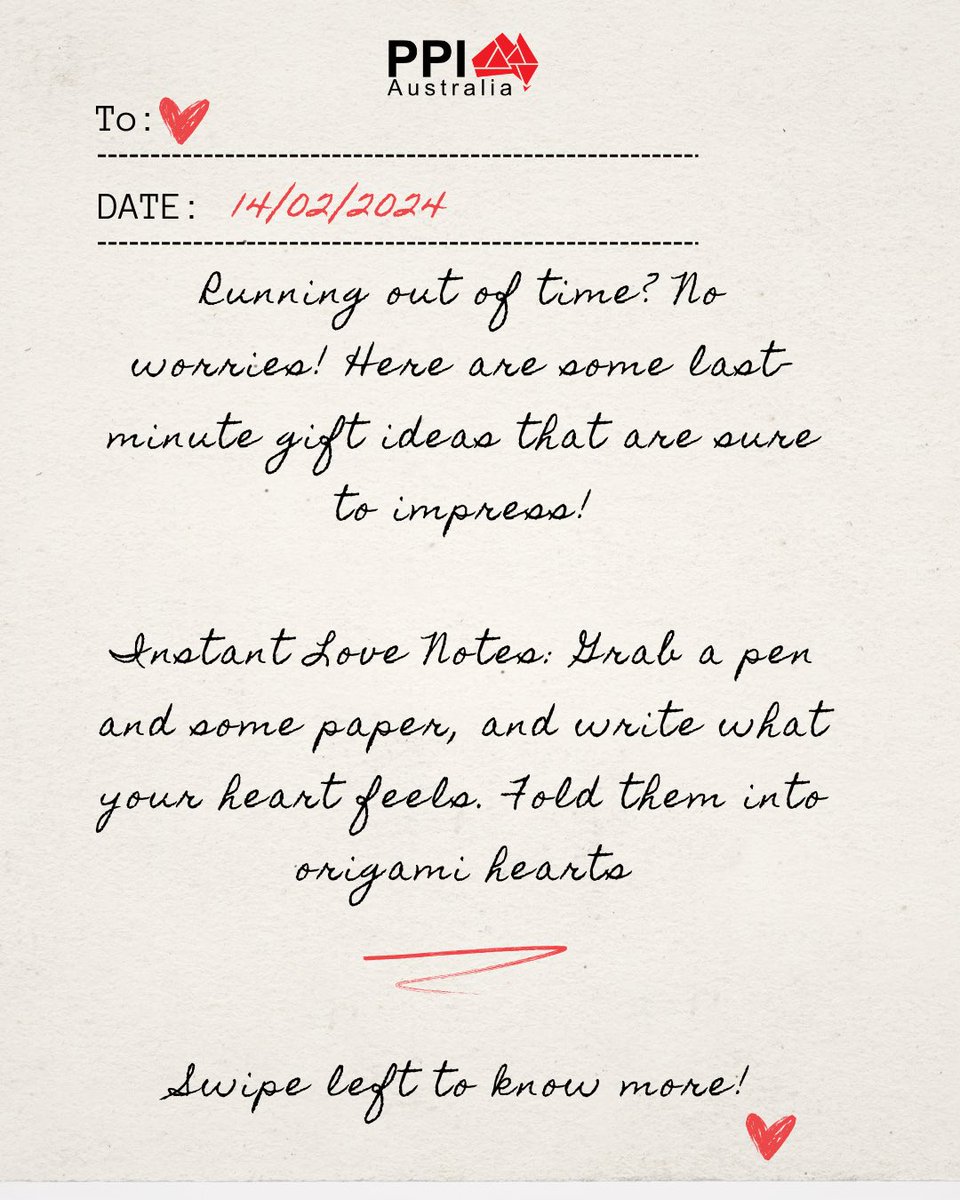 PPI
Australia
To:
DATE: 14/02/2024
Running out of time? No
worries! Here are some last-
minute gift ideas that are sure
to impress!
Instant Love Notes: Grab a pen
and some paper, and write what
your heart feels. Fold them into
origami hearts
Swipe left to know more!